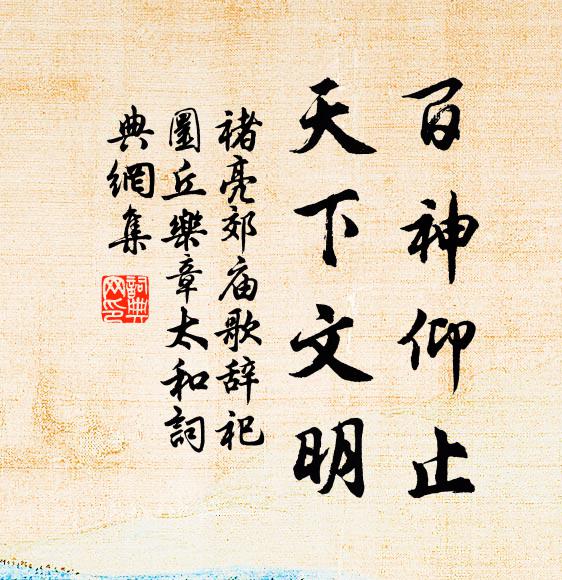 百神仰止
天下文明
褚亮郊庙歌辞祀
圜丘樂章太和詞
典網集
詞典
网印